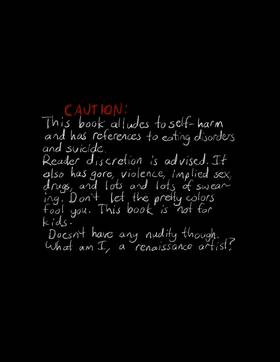 CAUTION:
This book alludes to self-harm
and has references to eating disorders
and suicide.
Reader discretion is advised. It
also has gore, violence, implied sex,
drugs, and lots and lots of swear-
ing. Don't let the pretty colors
fool you. This book is not for
kids.
Doesn't have any nudity though.
What am I, a renaissance artist?